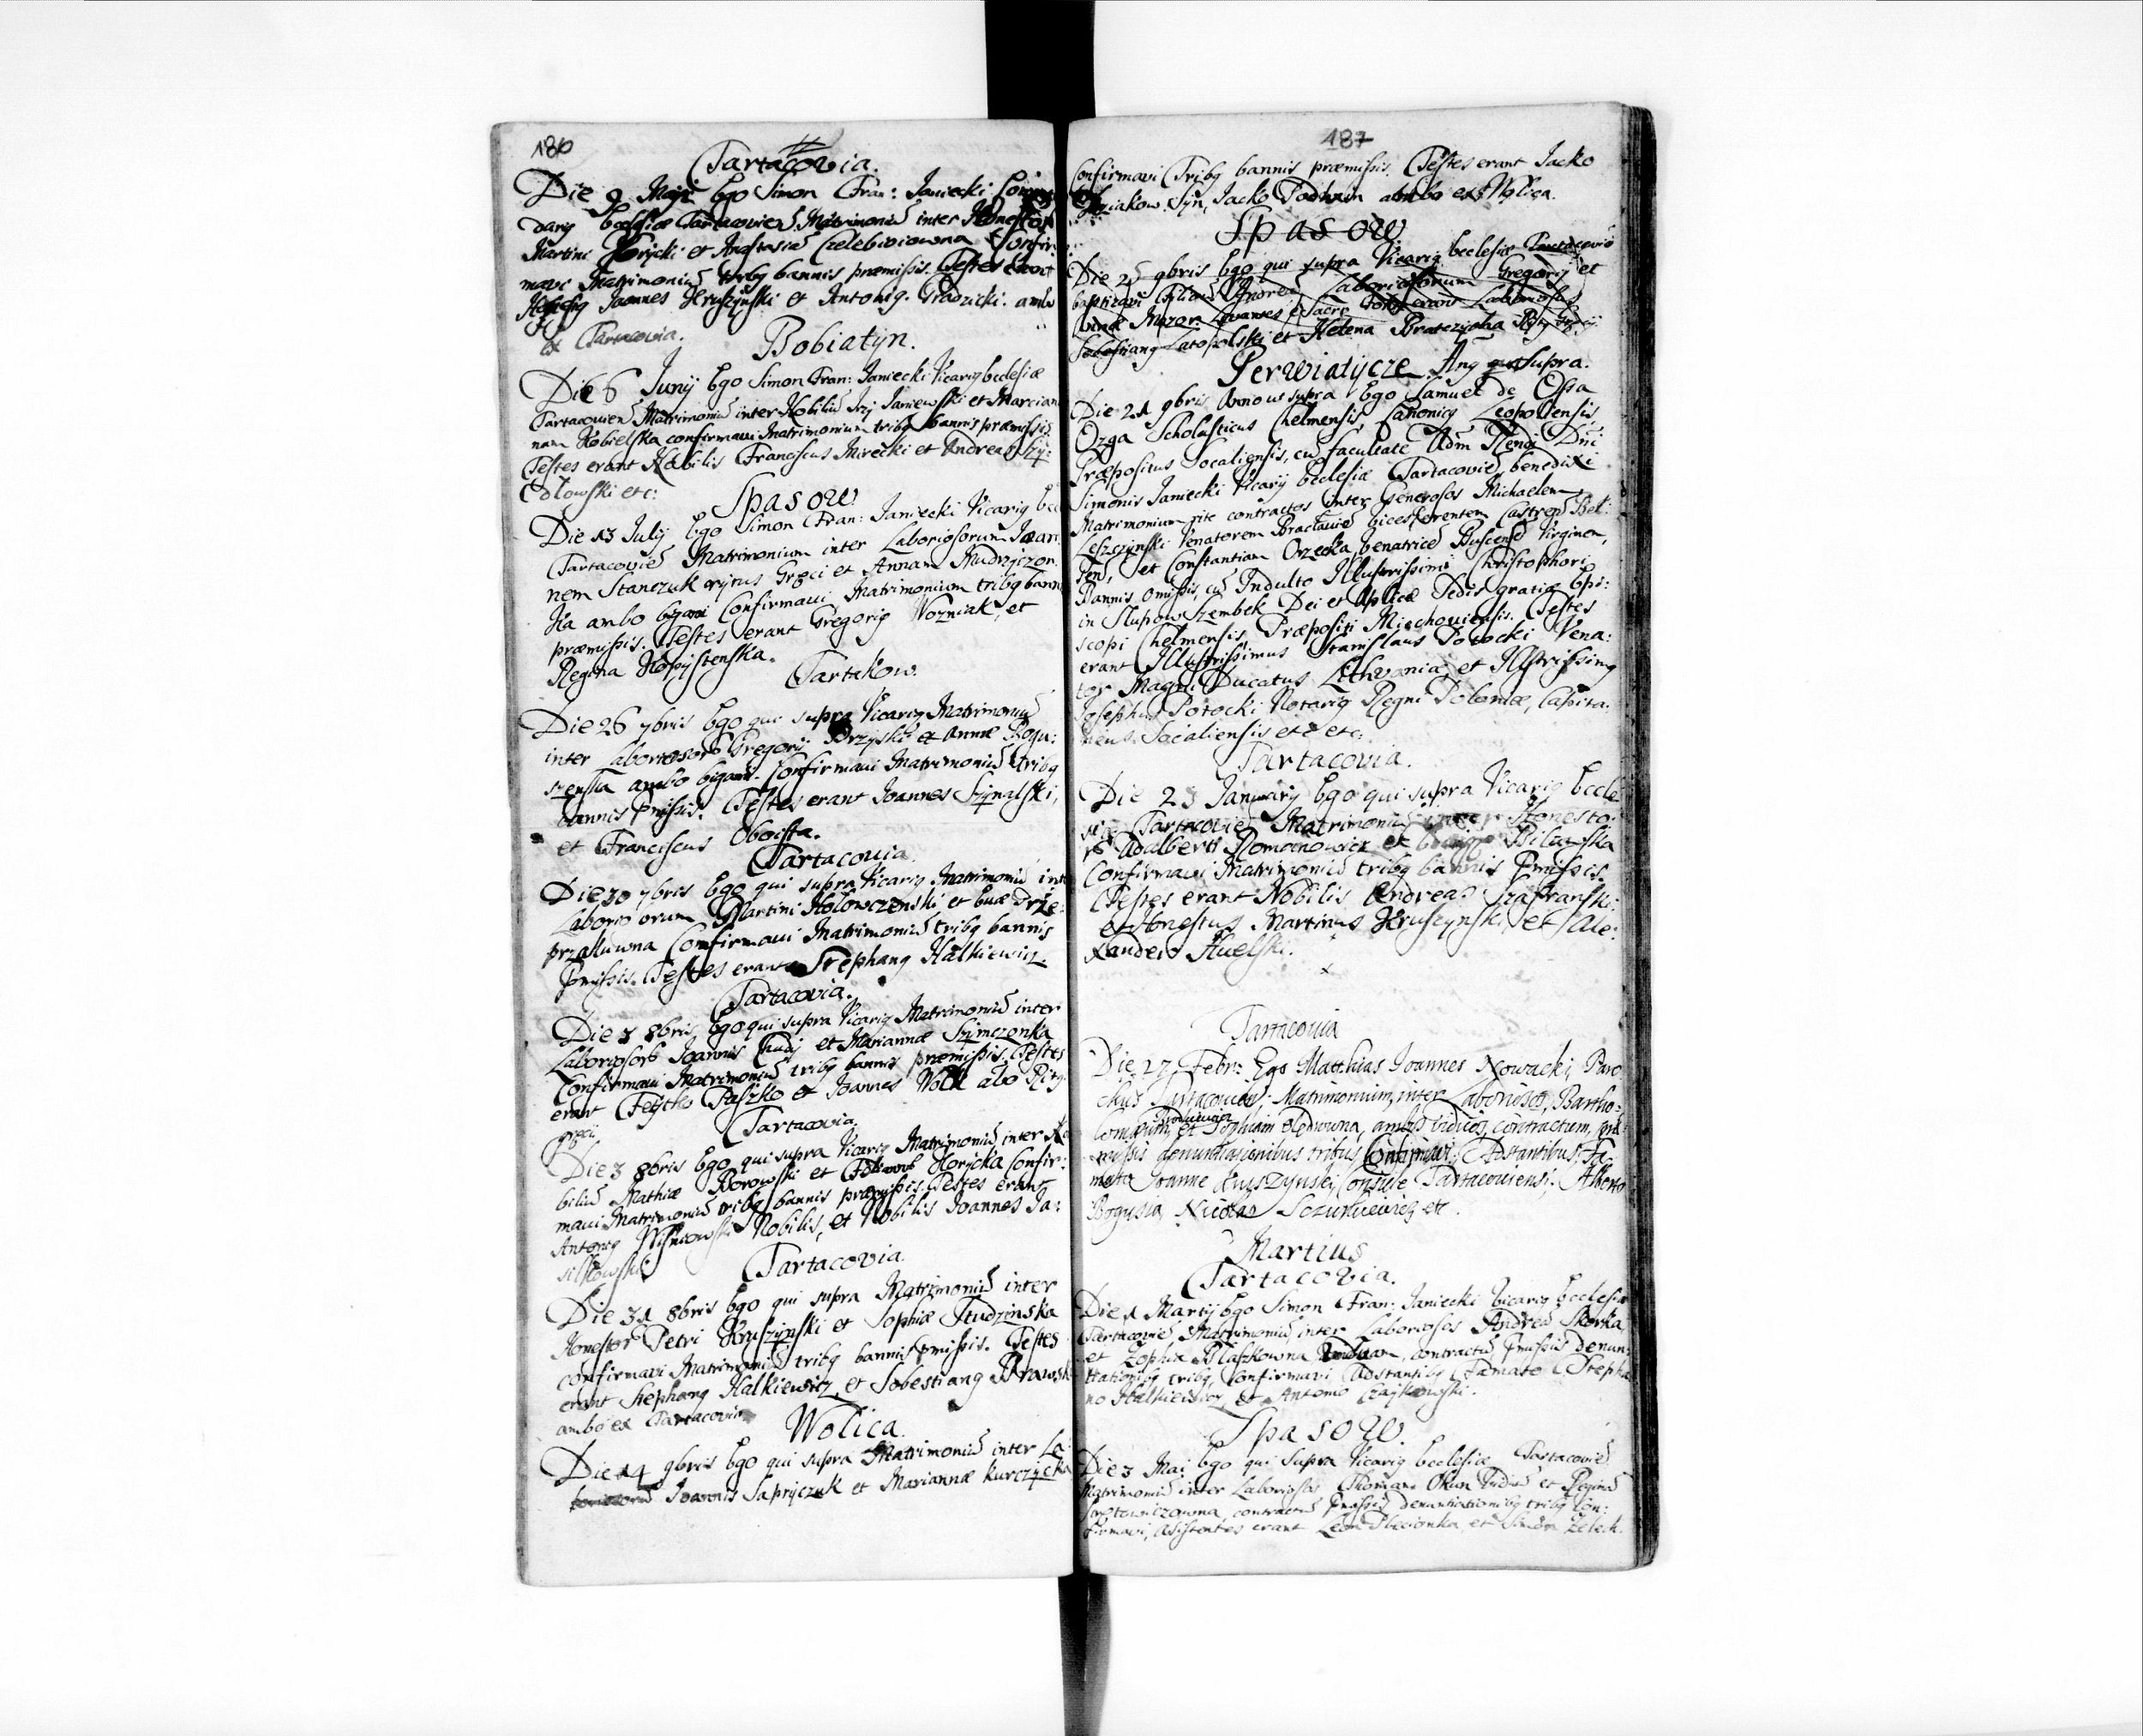 186
Tartacovia.
Die 9 Maji Ego Simon Fran: Janiecki
darig Ecclesiæ Tartacovien Matrimoniu inter
Martini Horÿcki et Anastasia Czelebiciowna Confir:
mavi Matrimoniu tribg bannis præmissis. Testes erant
Joannes Kruszÿnski et Antonig ambo
ex Tartacovia.
Bobiatÿn.
Die 6 Junÿ Ego Simon Fran: Janiecki Vicarig Ecclesiæ
Tartacovien Matrimoniu inter Nobiliu Janiewski et Marcian
nam Kobielska confirmavi Matrimonium tribg bannis præmissis
Testes erant Nobilis Franciscus Mirecki et Andreas Szÿ:
dlowski etc:
Spasow.
Die 13 Julÿ Ego Simon Fran: Janiecki Vicarig Ecc
Tartacovie Matrimonium inter Laboriosorum Joan
nem Stanczuk rÿtus Græci et Annam Mudrÿczon.
Ka ambo Confirmavi Matrimonium tribg bann
præmissis. Testes erant Gregorig Wozniak, et
Regina
Tartakow.
Die 26 7bris Ego qui supra Vicarig Matrimoniu
inter Laboriosor Gregorÿ Brzÿski et Annæ Rogu:
szenska ambo bigami. Confirmavi Matrimoniu tribg
bannis pmissis. Testes erant Joannes Szÿnalski,
et Franciscus Oboista.
Tartacovia
Die 30 7bris Ego qui supra Vicarig Matrimoniu int
Laboriosorum Martini Holowczenski et Evæ Drze:
przaluwna Confirmavi Matrimoniu tribg bannis
Pmissis. Testes erant Stephang Halkiewicz.
Tartacovia.
Die 3 8bris Ego qui supra Vicarig Matrimoniu inter
Laboriosorb Joannis et Mariannæ Szÿmczonka
Confirmavi Matrimoniu tribg bannis præmissis. Testes
erant Paszko et Joannes Wolk abo Ritg
græci
Tartacovia.
Die 3 8bris Ego qui supra Vicarig Matrimoniu inter No
biliu Mathiæ Borowski et Horÿcka Confir:
mavi Matrimoniu tribg bannis præmissis. Testes erant
Antonig Nobilis, et Nobilis Joannes Ja:
silkowski
Tartacovia.
Die 31 8bris Ego qui supra Matrimoniu inter
Honestor Petri Kruszÿnski et Sophiæ Studzinska
confirmavi Matrimoniu tribg bannis pmissis. Testes
erant Stephang Halkiewicz et Sobestiang
ambo ex Tartacovia
Wolica.
Die 14 9bris Ego qui supra Matrimoniu inter La:
Joannis Saprÿczuk et Mariannæ Kurczÿcka
187
Confirmavi Tribg bannis præmissis. Testes erant Jacko
Sÿn, Jacko ambo ex Wolica.
Spasow
Die 25 9bris Ego qui supra Vicarig Ecclesiæ Tartacovie
baptizavi Filiam Laboriosorum Gregorÿ et
Mazon Levantes e Sacro Fonte erant Laboriosus
Sobestiang et Helena
Perwiatÿcze. Ang qui supra.
Die 21 9bris Anno ut supra Ego Samuel de Ossa
Ozga Scholasticus Chelmensis, Canonicg Leopoliensis
Præpositus Socaliensis, cu facultate Adm Rendi Dni
Simonis Janiecki Vicarÿ Ecclesiæ Tartacovie, benedixi
Matrimonium rite contractos inter Generosos Michaelem
Leszczÿnski Venatorem Braclavie Vices Gerentem Castreo Bel:
zen, et Constantiam Orzecka Virginem,
Bannis omissis, cu Indulto Illustrissimi Christophori
in Slupow Szembek Dei et Aplicæ Sedis gratia Epi:
scopi Chelmensis Præpositi Miechoviensis. Testes
erant Illustrissimus Stanislaus Potocki Vena:
tor Magni Ducatus Lithvaniæ et Illstrissimg
Josephus Potocki Notarig Regni Poloniæ, Capita:
neus Socaliensis etc etc:
Tartacovia.
Die 23 Januarÿ Ego qui supra Vicarig Eccle
siæ Tartacovie Matrimoniu inter Honesto:
rb Adalberti Romanowicz et Bilawska
Confirmavi Matrimoniu tribg bannis Pmissis.
Testes erant Nobilis Andreas Szafranski
et Honestus Martinus Kruszÿnski et Ale:
xander Huelski.
Tartacovia
Die 27 Febr: Ego Matthias Joannes Nowacki, Paro
chus Tartacovien: Matrimonium, inter Laboriosos, Bartho:
lomæum et Sophiam Oledowna, ambos viduos, contractum, præ
missis denuntiationibus tribus, Confirmavi. Adstantibus Fa:
mato Joanne Kruszÿnski Consule Tartacoviensi. Alberto
Bogusia Nicolao Sczurkiewicz etc.
Martius
Tartacovia.
Die 1 Martÿ Ego Simon Fran: Janiecki Vicarig Ecclesiæ
Tartacovie Matrimoniu inter Laboriosos Andrea Skorka
et Zophia Blaszkowna contractu Pmissis denun:
tiationibg tribg Confirmavi Adstantibg Famato Stepha
no Halkiewicz, et Antonio Czaÿkowski.
Spasow.
Die 3 Mai Ego qui supra Vicarig Ecclesiæ Tartacovie
Matrimoniu inter Laboriosos Thomam Okun Vidue et Regina
contractu Pmissis denuntiationibg tribg Con:
firmavi, Assistentes erant Leon et Simon Zelech.